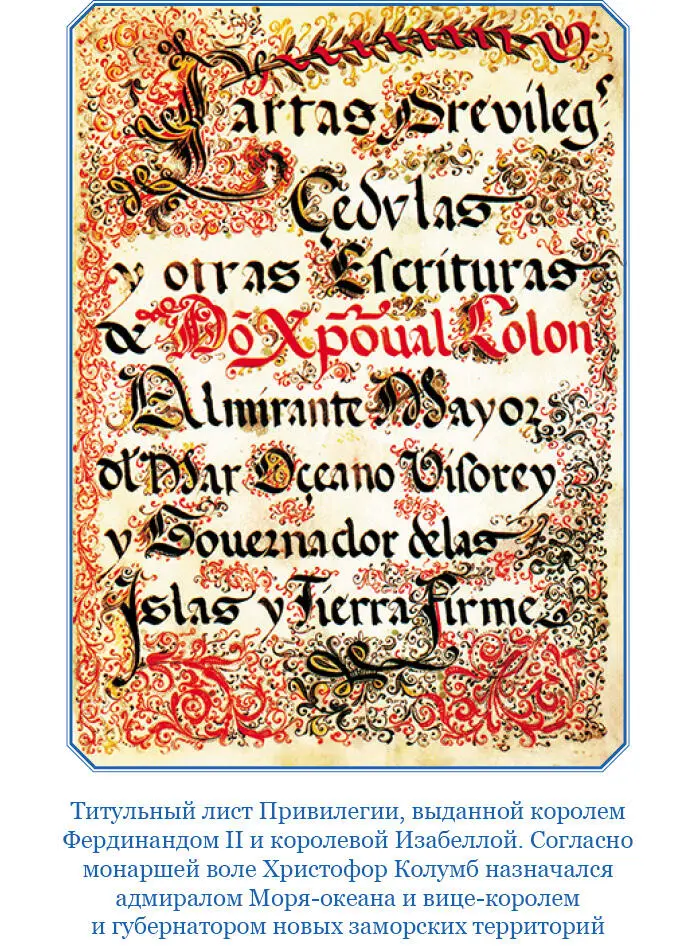 Cartas Previleg^s
Çedvlas
y otras Escrituras
de Dō Xp̄oual Colon
Almirante Mayor
dl Mar Oçeano Visorey
y Gouernador delas
Islas y Tierra firme
Титульный лист Привилегии, выданной королем
Фердинандом II и королевой Изабеллой. Согласно
монаршей воле Христофор Колумб назначался
адмиралом Моря-океана и вице-королем
и губернатором новых заморских территорий